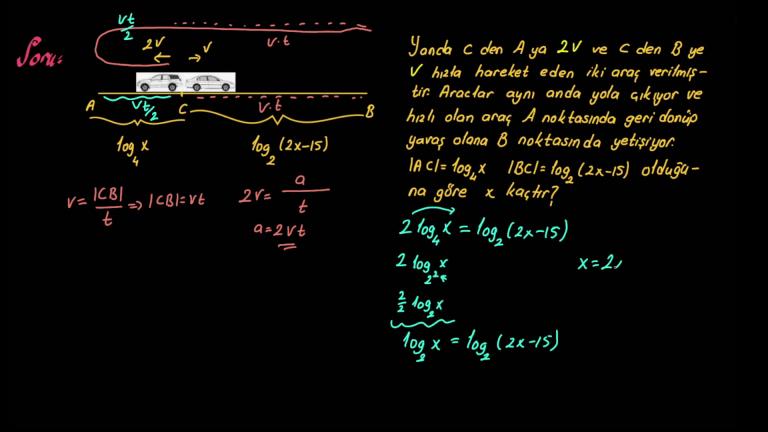 Soru:
vt/2
v.t
2V
V
A
vt/2
C
v.t
B
log₄x
log₂(2x-15)
v = |CB|/t ⇒ |CB| = vt
2v = a/t
a = 2vt
Yanda C den A ya 2V ve C den B ye
V hızla hareket eden iki araç verilmiş-
tir. Araclar aynı anda yola çıkıyor ve
hızlı olan araç A noktasında geri donüp
yavaş olana B noktasında yetişiyor.
|AC|=log₄x |BC|=log₂(2x-15) olduğu-
na göre x kaçtır?
2log₄x = log₂(2x-15)
2log₂²x
x=2
2/2 log₂x
log₂x = log₂(2x-15)